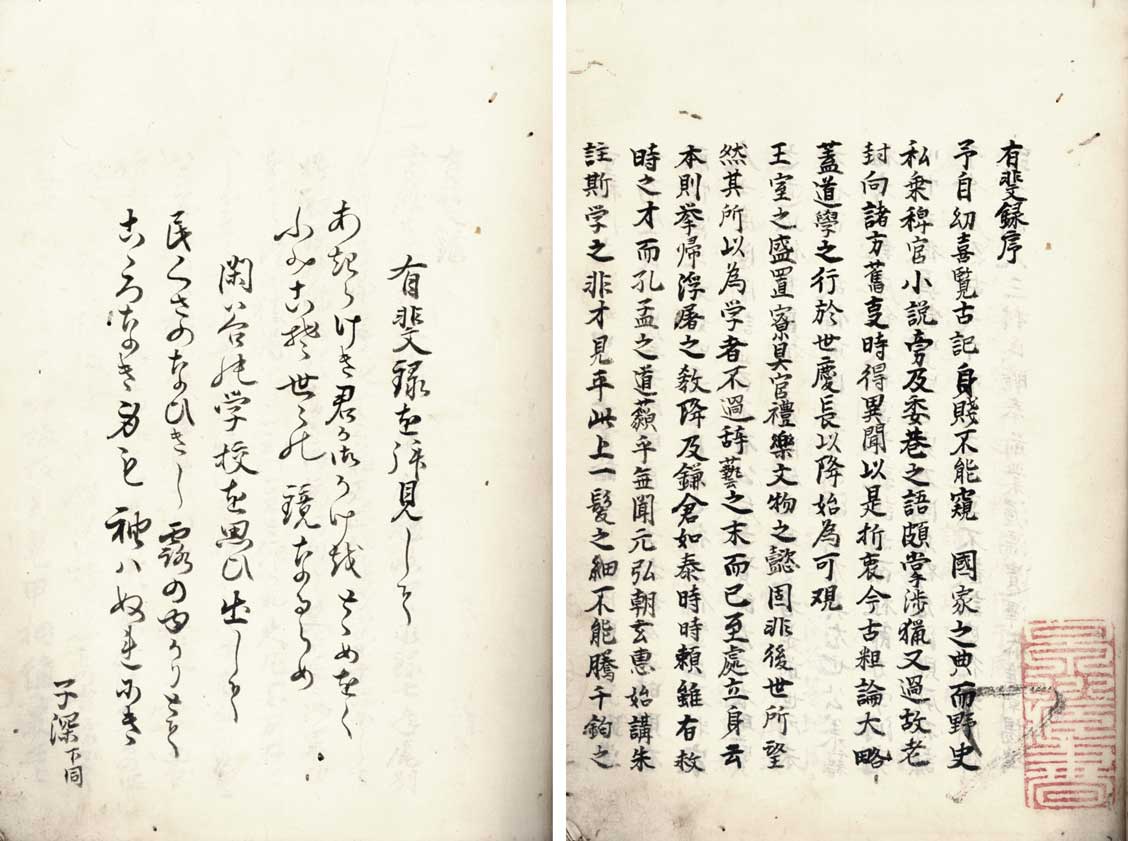 有斐録序
予自幼喜覧古記身賤不能窺　國家之典而野史
私乗稗官小説旁及委巷之語頗掌渉獵又過故老
封向諸方舊事時得異聞以是折衷今古粗論大略
蓋道學之行於世慶長以降始為可观
王室之盛置寮具官禮樂文物之懿固非後世所望
然其所以為学者不過辞藝之末而已至處立身云
本則挙帰浮屠之教降及鎌倉如泰時時頼雖有救
時之才而孔孟之道藐乎無聞元弘朝玄恵始講朱
註斯学之非才見乎此上一髪之細不能騰千鈞之
有斐録を拝見して
あきらけき君かみかけをとめをく
ふみこそ世々の鏡なるらめ
閑谷の学校を思ひ出して
民くさのなひきし露のゆかりとて
こゝろなき身も袖ハぬれにき
子深下同